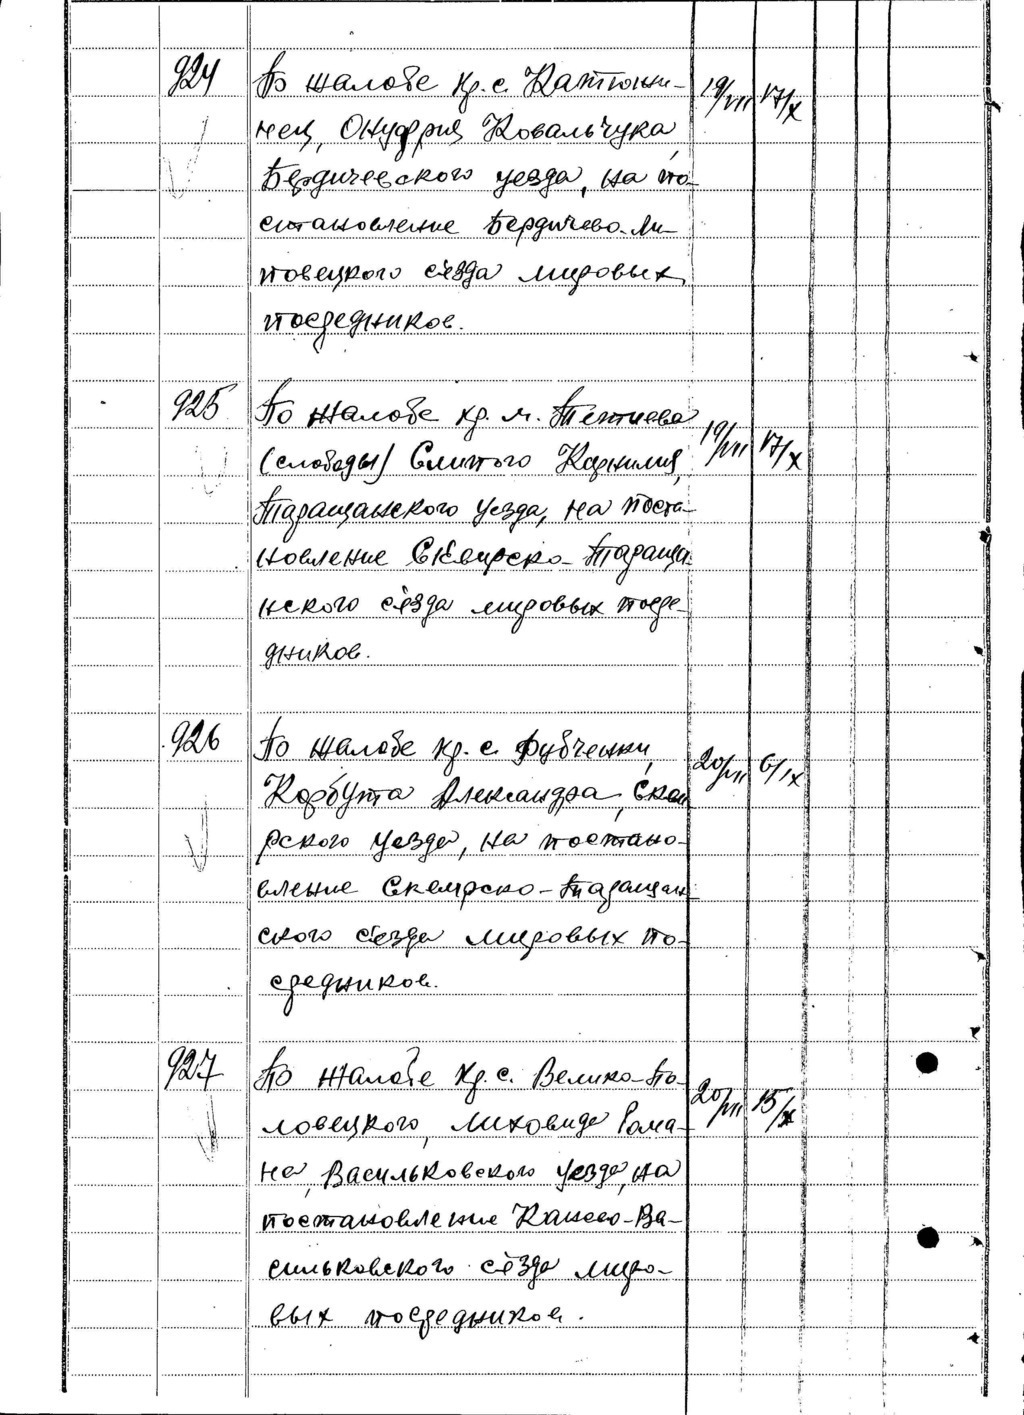 924 По жалобе кр. с. Катюжи- 19/VII 17/X
нец, Онуфрия Ковальчука,
Бердичевского уезда, на по-
становление Бердичево-Ли-
повецкого съезда мировых
посредников.
925 По жалобе кр. м. Тетиева 19/VII 17/X
(слободы) Слипого Корнилия,
Таращанского уезда, на поста-
новление Сквирско-Тараща-
нского съезда мировых посре-
дников.
926 По жалобе кр. с. 20/VII 6/IX
Корбута Александра, Скви-
рского уезда, на постано-
вление Сквирско-Таращан-
ского съезда мировых по-
средников.
927 По жалобе кр. с. Велико-По- 20/VII 15/X
ловецкого, Лиховида Рома-
на, Васильковского уезда, на
постановление Киево-Ва-
сильковского съезда миро-
вых посредников.